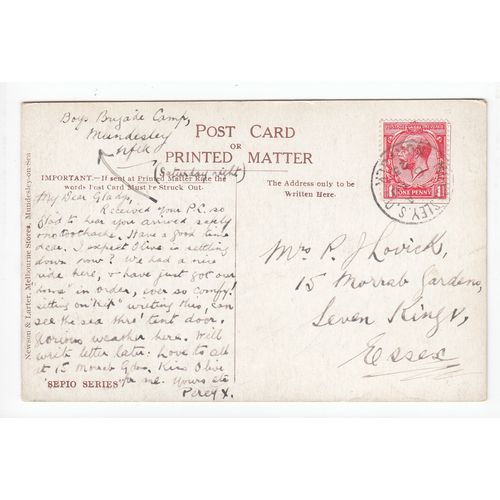 Boys Brigade Camp,
Mundesley
Nflk
(Saturday night)
POST CARD
OR
PRINTED MATTER
IMPORTANT.—If sent at Printed Matter Rate the
words Post Card Must be Struck Out.
The Address only to be
Written Here.
My Dear Gladys,
Received your P.C. so
glad to hear you arrived safely
Have a good time
dear. I expect Olive is settling
down now? We had a nice
ride here, & have just got our
"home" in order, ever so comfy!
sitting on "Kit" writing this, can
see the sea thro' tent door,
glorious weather here. Will
write letter later. Love to all
at 15 Morrab Gdns. Kiss Olive
for me. Yours etc
Percy X.
'SEPIO SERIES'
Newson & Larter, Melbourne Stores, Mundesley-on-Sea
POSTAGE REVENUE
1 ONE PENNY 1
Mrs P. J. Lovick,
15 Morrab Gardens,
Seven Kings,
Essex